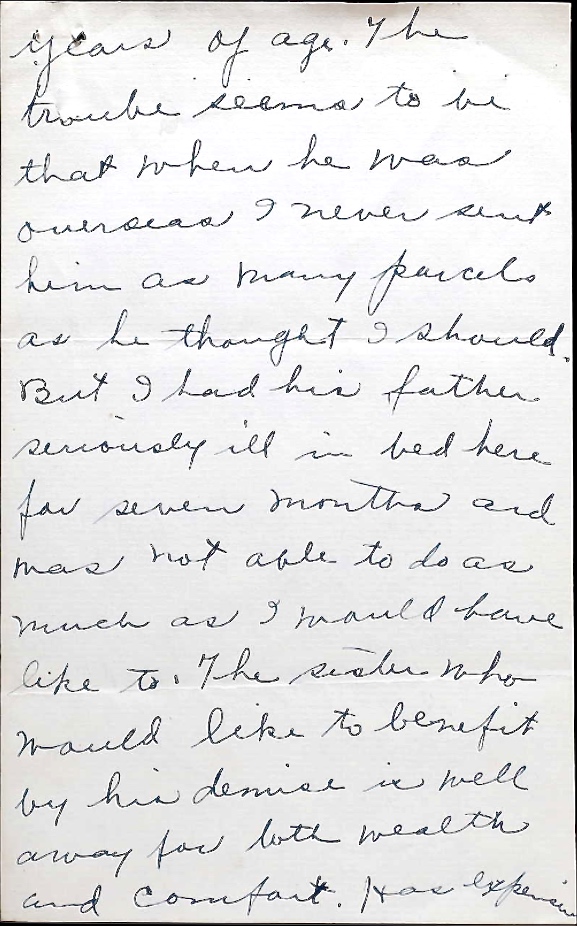 years of age. The
trouble seems to be
that when he was
overseas I never sent
him as many parcels
as he thought I should.
But I had his father
seriously ill in bed here
for seven months and
was not able to do as
much as I would have
like to. The sister who
would like to benefit
by his demise is well
away for both wealth
and comfort. Has